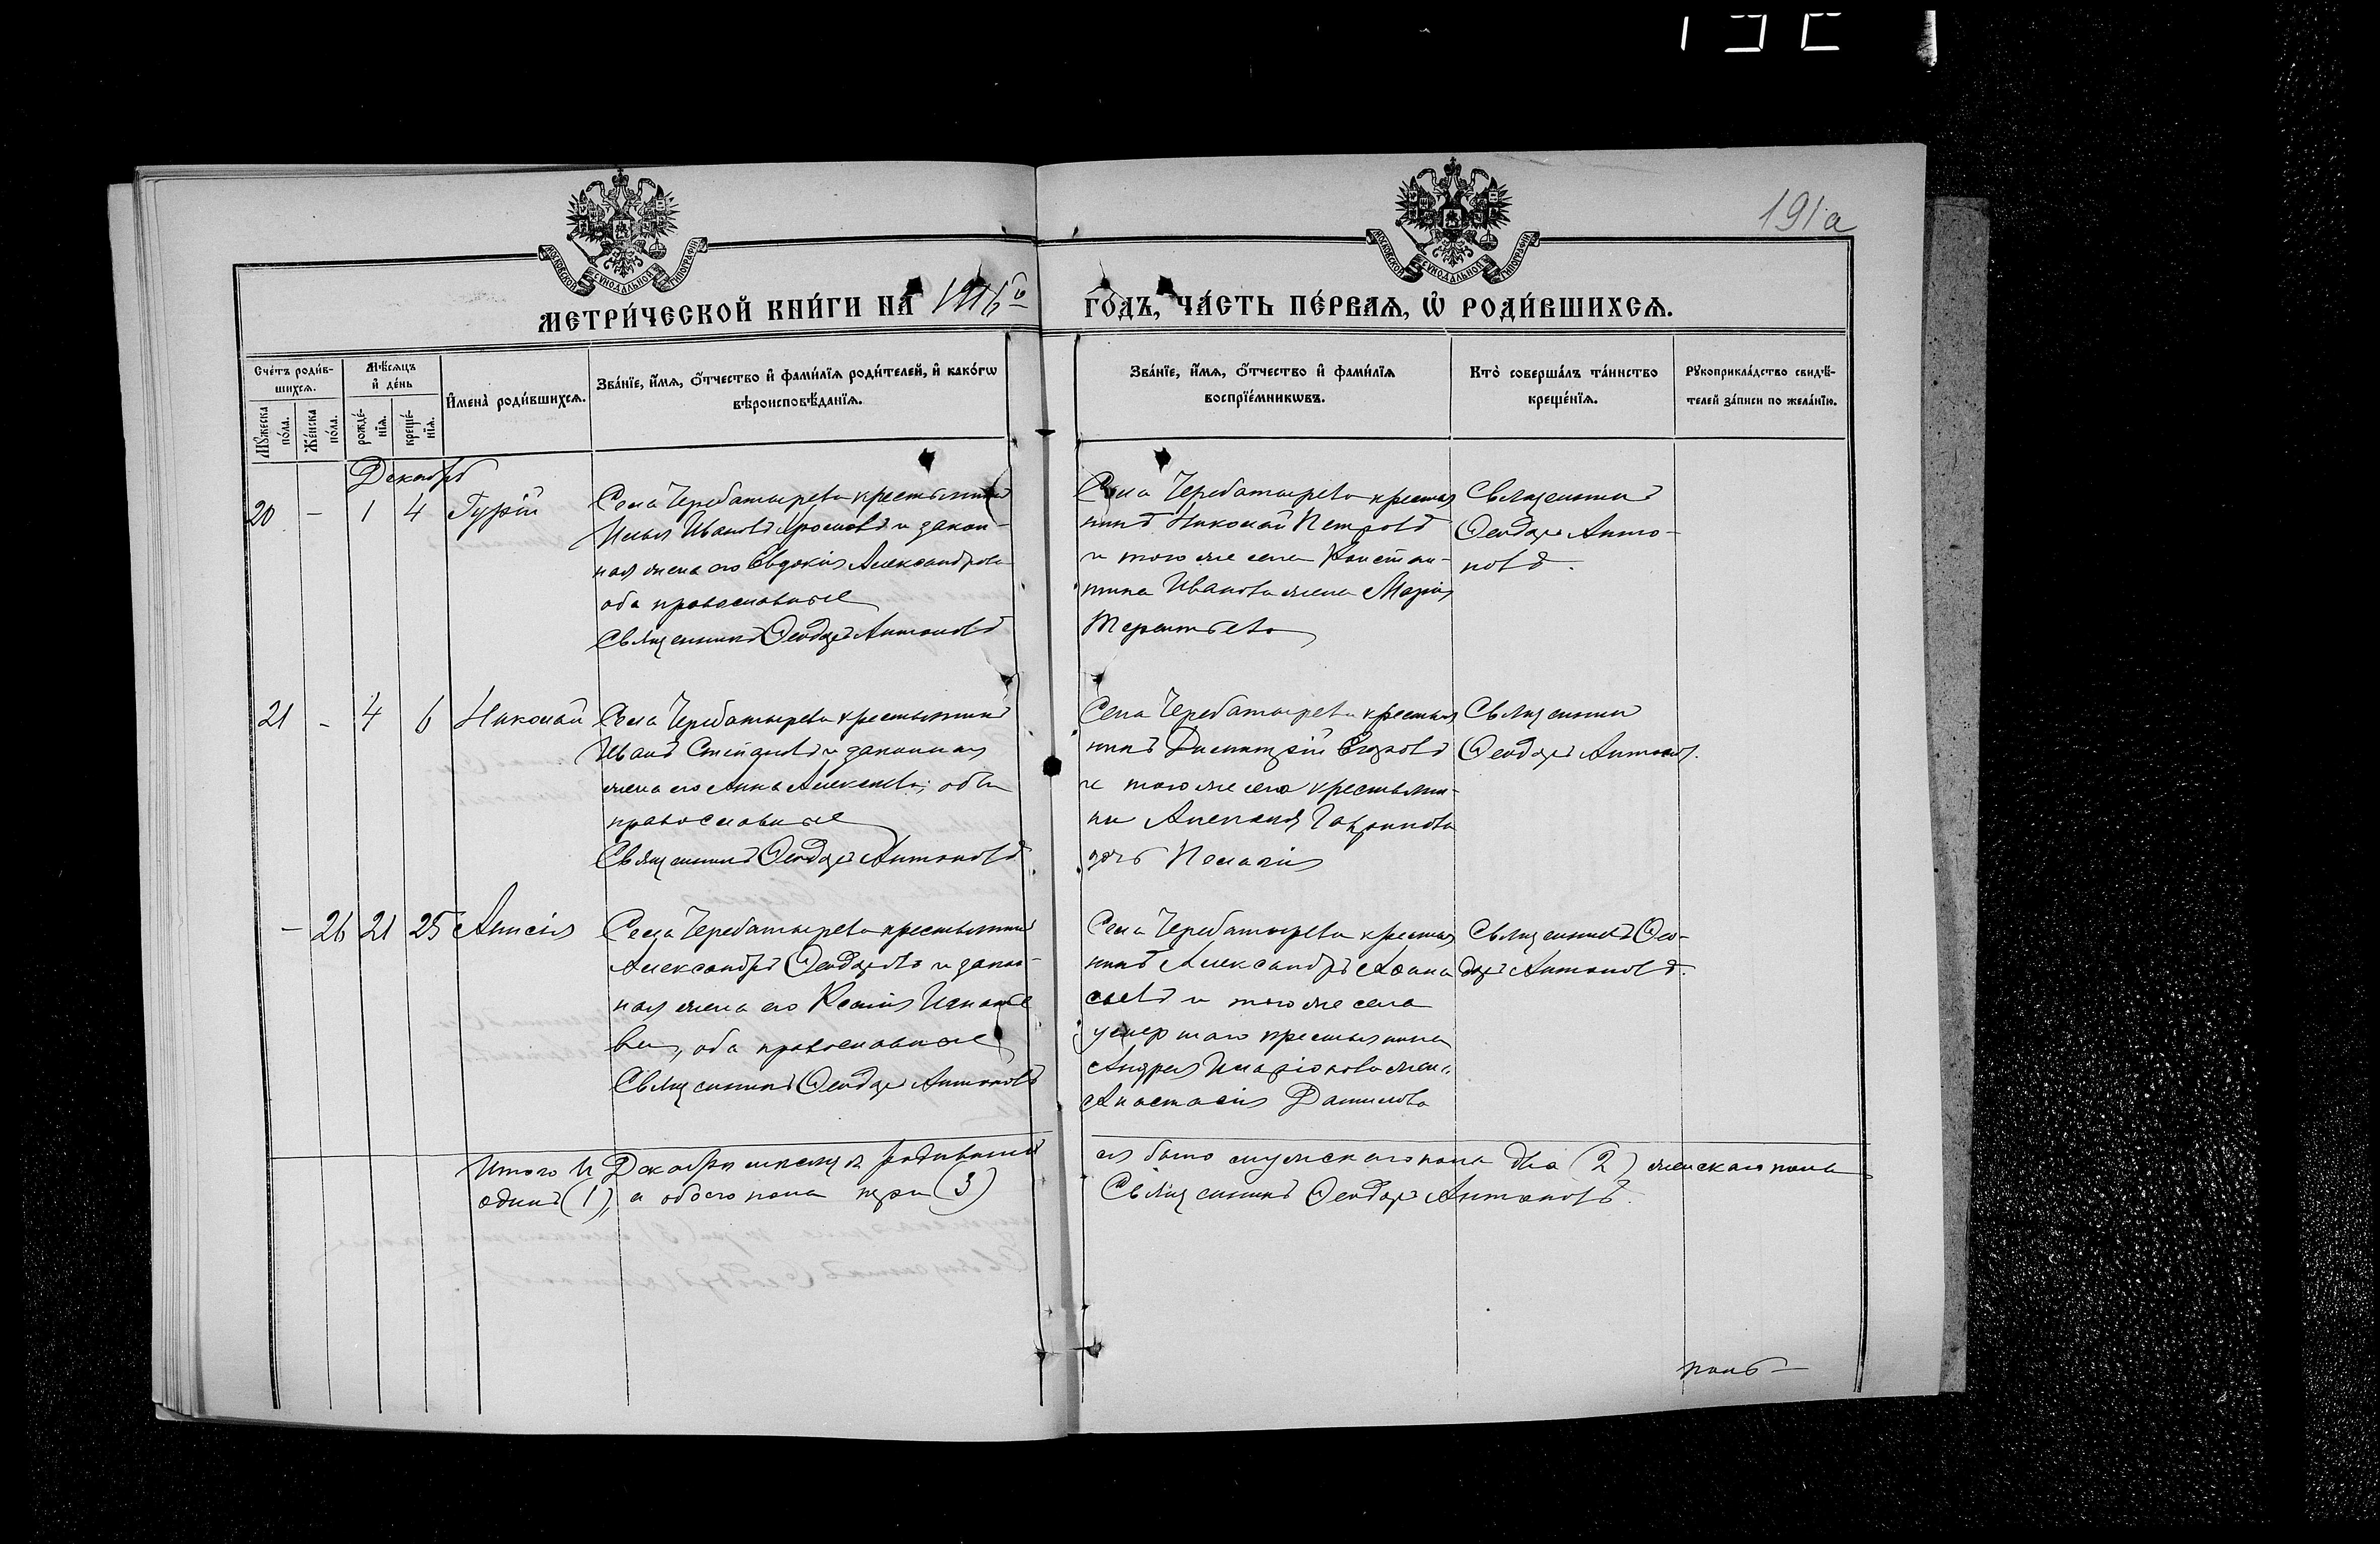 191а
МОСКОВСКОЙ СѴНОДАЛЬНОЙ ТИПОГРАФІИ
МОСКОВСКОЙ СѴНОДАЛЬНОЙ ТИПОГРАФІИ
МЕТРИ́ЧЕСКОЙ КНИ́ГИ НА 1916 ГОДЪ, ЧА́СТЬ ПЕ́РВАѦ, Ѡ РОДИ́ВШИХСѦ.
Сче́тъ роди́в-
шихсѧ.
Мꙋжеска по́ла.
Же́нска по́ла.
Мѣ́сѧцъ
и҆ де́нь
рожде́-
нїѧ.
креще́-
нїѧ.
И҆мена̀ роди́вшихсѧ.
Зва́нїе, и҆́мѧ, ѻ҆́тчество и҆ фами́лїѧ роди́телей, и҆ како́гѡ
вѣроисповѣ́данїѧ.
Зва́нїе, и҆́мѧ, ѻ҆́тчество и҆ фами́лїѧ
воспрїе́мникѡвъ.
Кто̀ соверша́лъ та́инство
креще́нїѧ.
Рꙋкоприкла́дство свидѣ́-
телей за́писи по жела́нїю.
Декабрь
20 - 1 4 Гурій
Села Черебатырева крестьянинъ
Илья Ивановъ и закон-
ная жена его Евдокія Александрова
оба православные
Священникъ Ѳеодоръ Антоновъ
Села Черебатырева крестья
нинъ Николай Петровъ
и того же села Констан-
тина Иванова жена Марія
Терентьева
Священникъ
Ѳеодоръ Анто-
новъ.
21 - 4 6 Николай
Села Черебатырева крестьянинъ
Иванъ Степановъ и законная
жена его Анна Алексеева, оба
православные
Священникъ Ѳеодоръ Антоновъ
Села Черебатырева крестья
нинъ Димитрій Егоровъ
и того же села крестьяни-
на Гаврилова
дочь Пелагія
Священникъ
Ѳеодоръ Антонов.
- 26 21 25 Анисія
Села Черебатырева крестьянинъ
Александръ Ѳеодоровъ и закон-
ная жена его Ксенія Игнатье
ва, оба православные
Священникъ Ѳеодоръ Антоновъ
Села Черебатырева крестья
нинъ Александръ Аѳана
сьевъ и того же села
умершаго крестьянина
Андрея Иларіонова жена
Анастасія Данилова
Священникъ Ѳео-
доръ Антоновъ.
Итого в Декабре месяце родивших
ся было мужского пола два (2) женского пола
один (1), а обоего пола три (3)
Священникъ Ѳеодоръ Антоновъ.